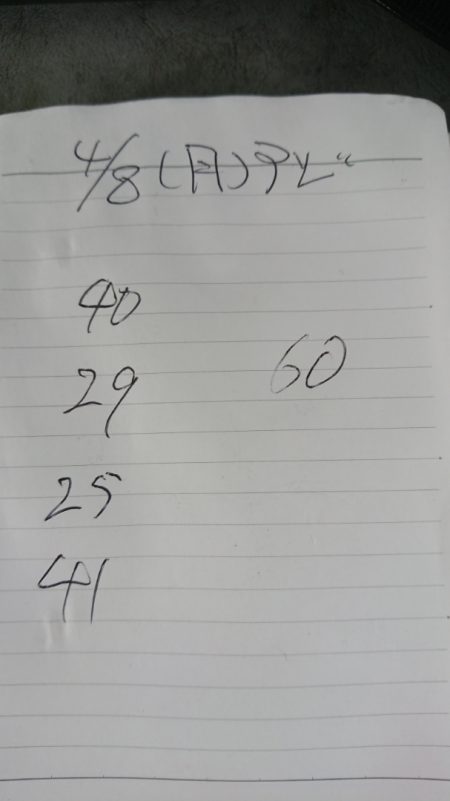 4/8(月)テレ〃
40
29
60
25
41